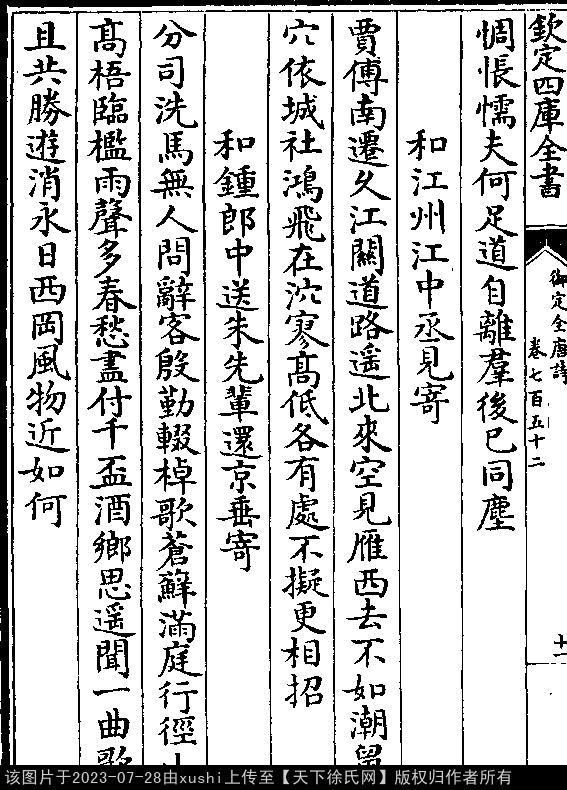 欽定四庫全書
御定全唐詩
卷七百五十二
十一
惆悵懦夫何足道自離羣後已同塵
和江州江中丞見寄
賈傅南遷久江關道路遥北來空見雁西去不如潮鼠
穴依城社鴻飛在泬寥高低各有處不擬更相招
和鍾郎中送朱先輩還京垂寄
分司洗馬無人問辭客殷勤輟棹歌蒼蘚滿庭行徑小
高梧臨檻雨聲多春愁盡付千盃酒鄉思遥聞一曲歌
且共勝遊消永日西岡風物近如何
该图片于2023-07-28由xushi上传至【天下徐氏网】版权归作者所有